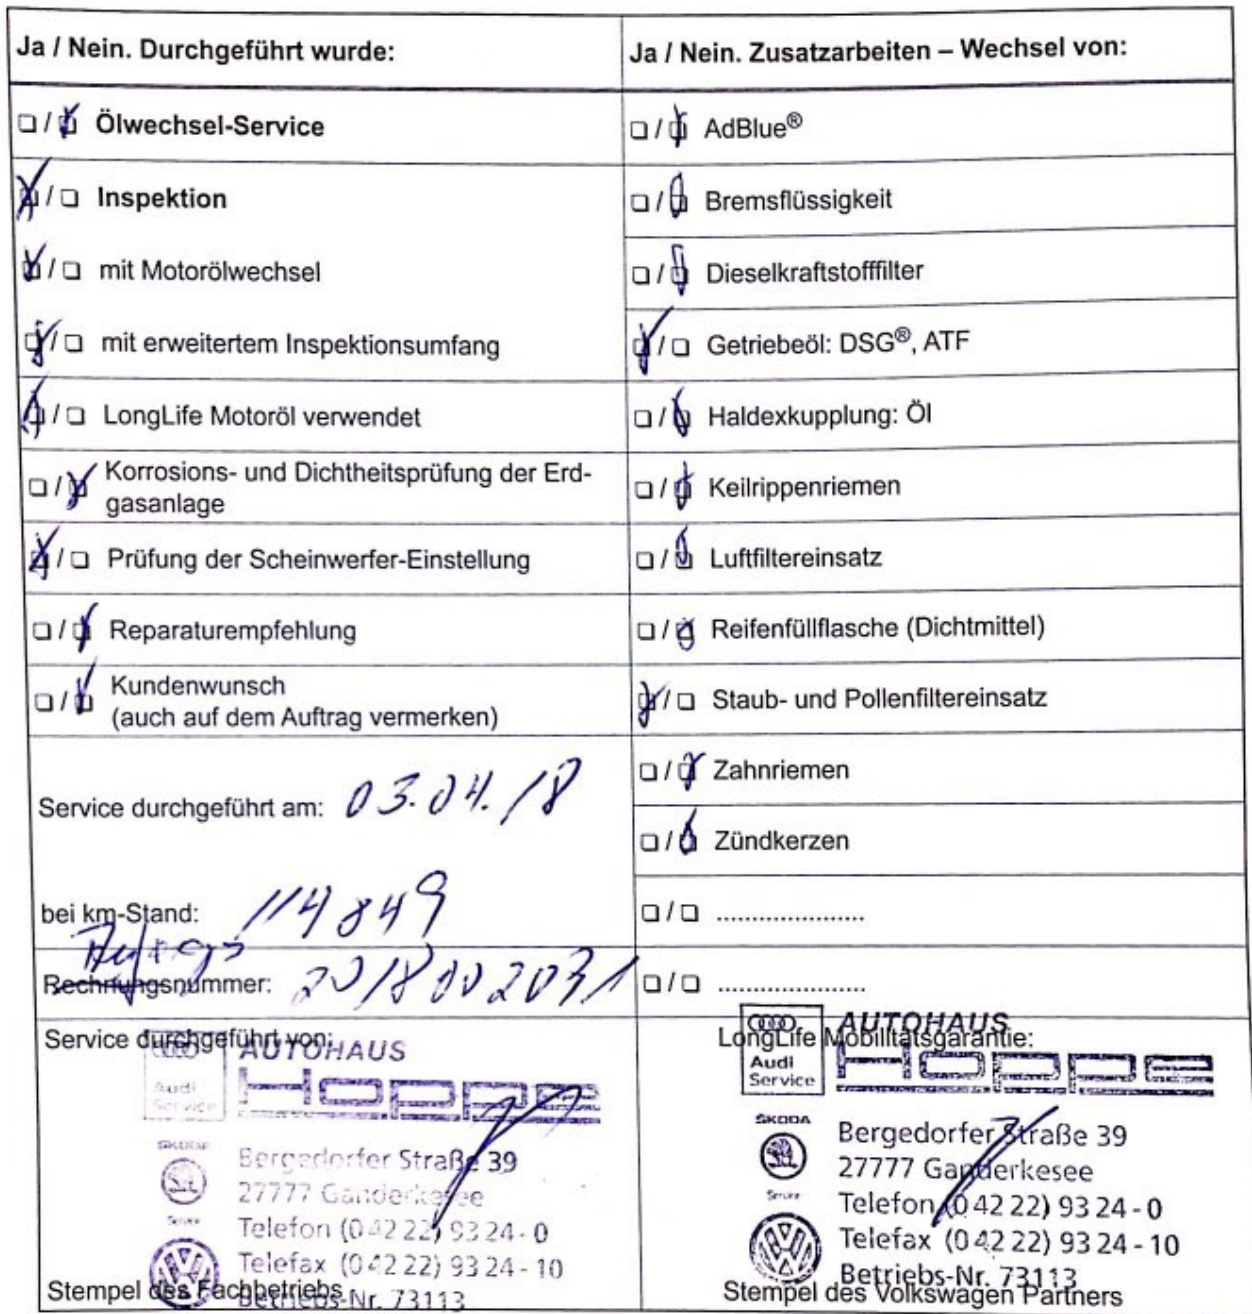 Ja / Nein. Durchgeführt wurde:
Ölwechsel-Service
Inspektion
mit Motorölwechsel
mit erweitertem Inspektionsumfang
LongLife Motoröl verwendet
Korrosions- und Dichtheitsprüfung der Erd-
gasanlage
Prüfung der Scheinwerfer-Einstellung
Reparaturempfehlung
Kundenwunsch
(auch auf dem Auftrag vermerken)
Service durchgeführt am: 03.04.18
bei km-Stand: 114849
Auftrags
Rechnungsnummer: 2018002031
Service durchgeführt von:
AUTOHAUS
Audi
Service
Hoppe
SKODA
Bergedorfer Straße 39
27777 Ganderkesee
Service
Telefon (0 42 22) 93 24 - 0
Telefax (0 42 22) 93 24 - 10
Stempel des Fachbetriebs
Betriebs-Nr. 73113
Ja / Nein. Zusatzarbeiten – Wechsel von:
AdBlue®
Bremsflüssigkeit
Dieselkraftstofffilter
Getriebeöl: DSG®, ATF
Haldexkupplung: Öl
Keilrippenriemen
Luftfiltereinsatz
Reifenfüllflasche (Dichtmittel)
Staub- und Pollenfiltereinsatz
Zahnriemen
Zündkerzen
.....................
.....................
AUTOHAUS
LongLife Mobilitätsgarantie:
Audi
Service
Hoppe
SKODA
Bergedorfer Straße 39
27777 Ganderkesee
Service
Telefon (0 42 22) 93 24 - 0
Telefax (0 42 22) 93 24 - 10
Betriebs-Nr. 73113
Stempel des Volkswagen Partners